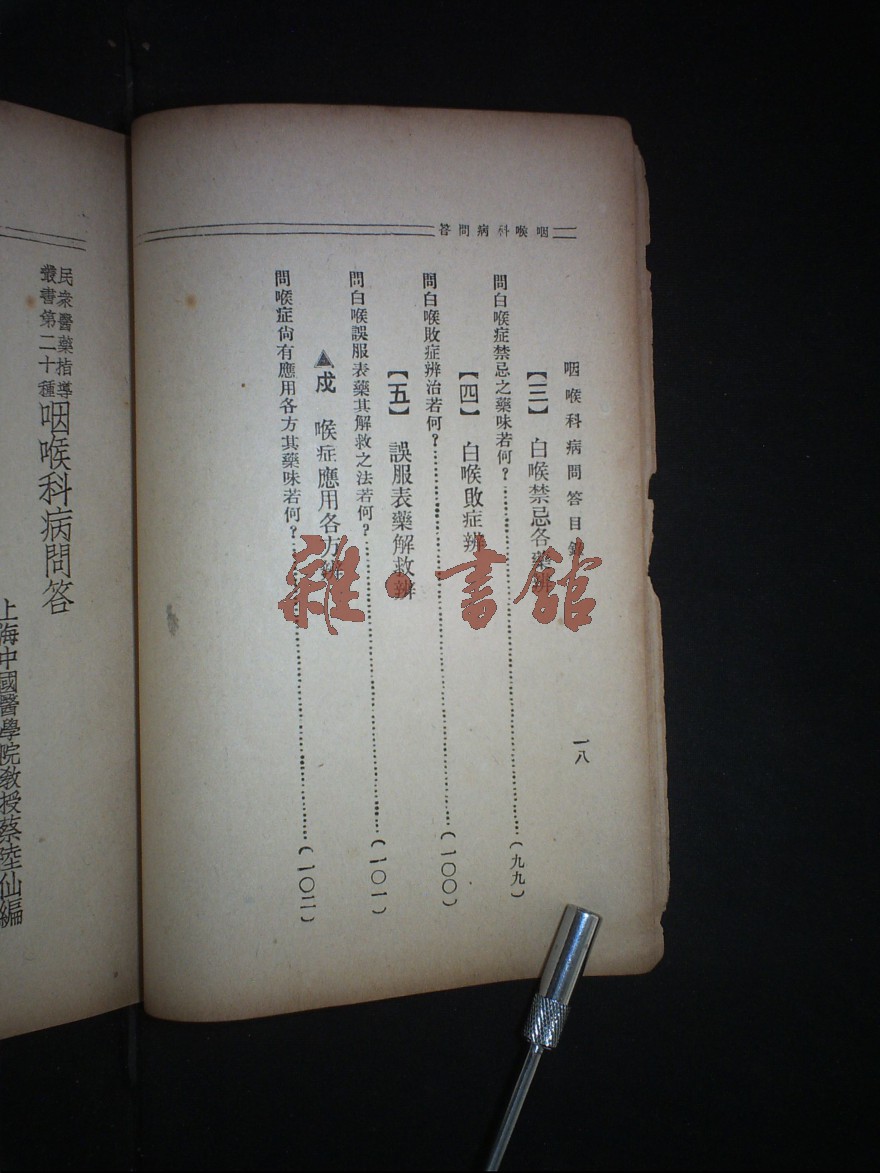 咽喉科病問答
咽喉科病問答目錄
一八
【三】 白喉禁忌各藥辨
問白喉症禁忌之藥味若何？……(九九)
【四】 白喉敗症辨
問白喉敗症辨治若何？……(一〇〇)
【五】 誤服表藥解救辨
問白喉誤服表藥其解救之法若何？……(一〇一)
▲戍 喉症應用各方辨
問喉症尙有應用各方其藥味若何？……(一〇二)
雜·書館
民衆醫藥指導
叢書第二十種
咽喉科病問答
上海中國醫學院敎授蔡陸仙編